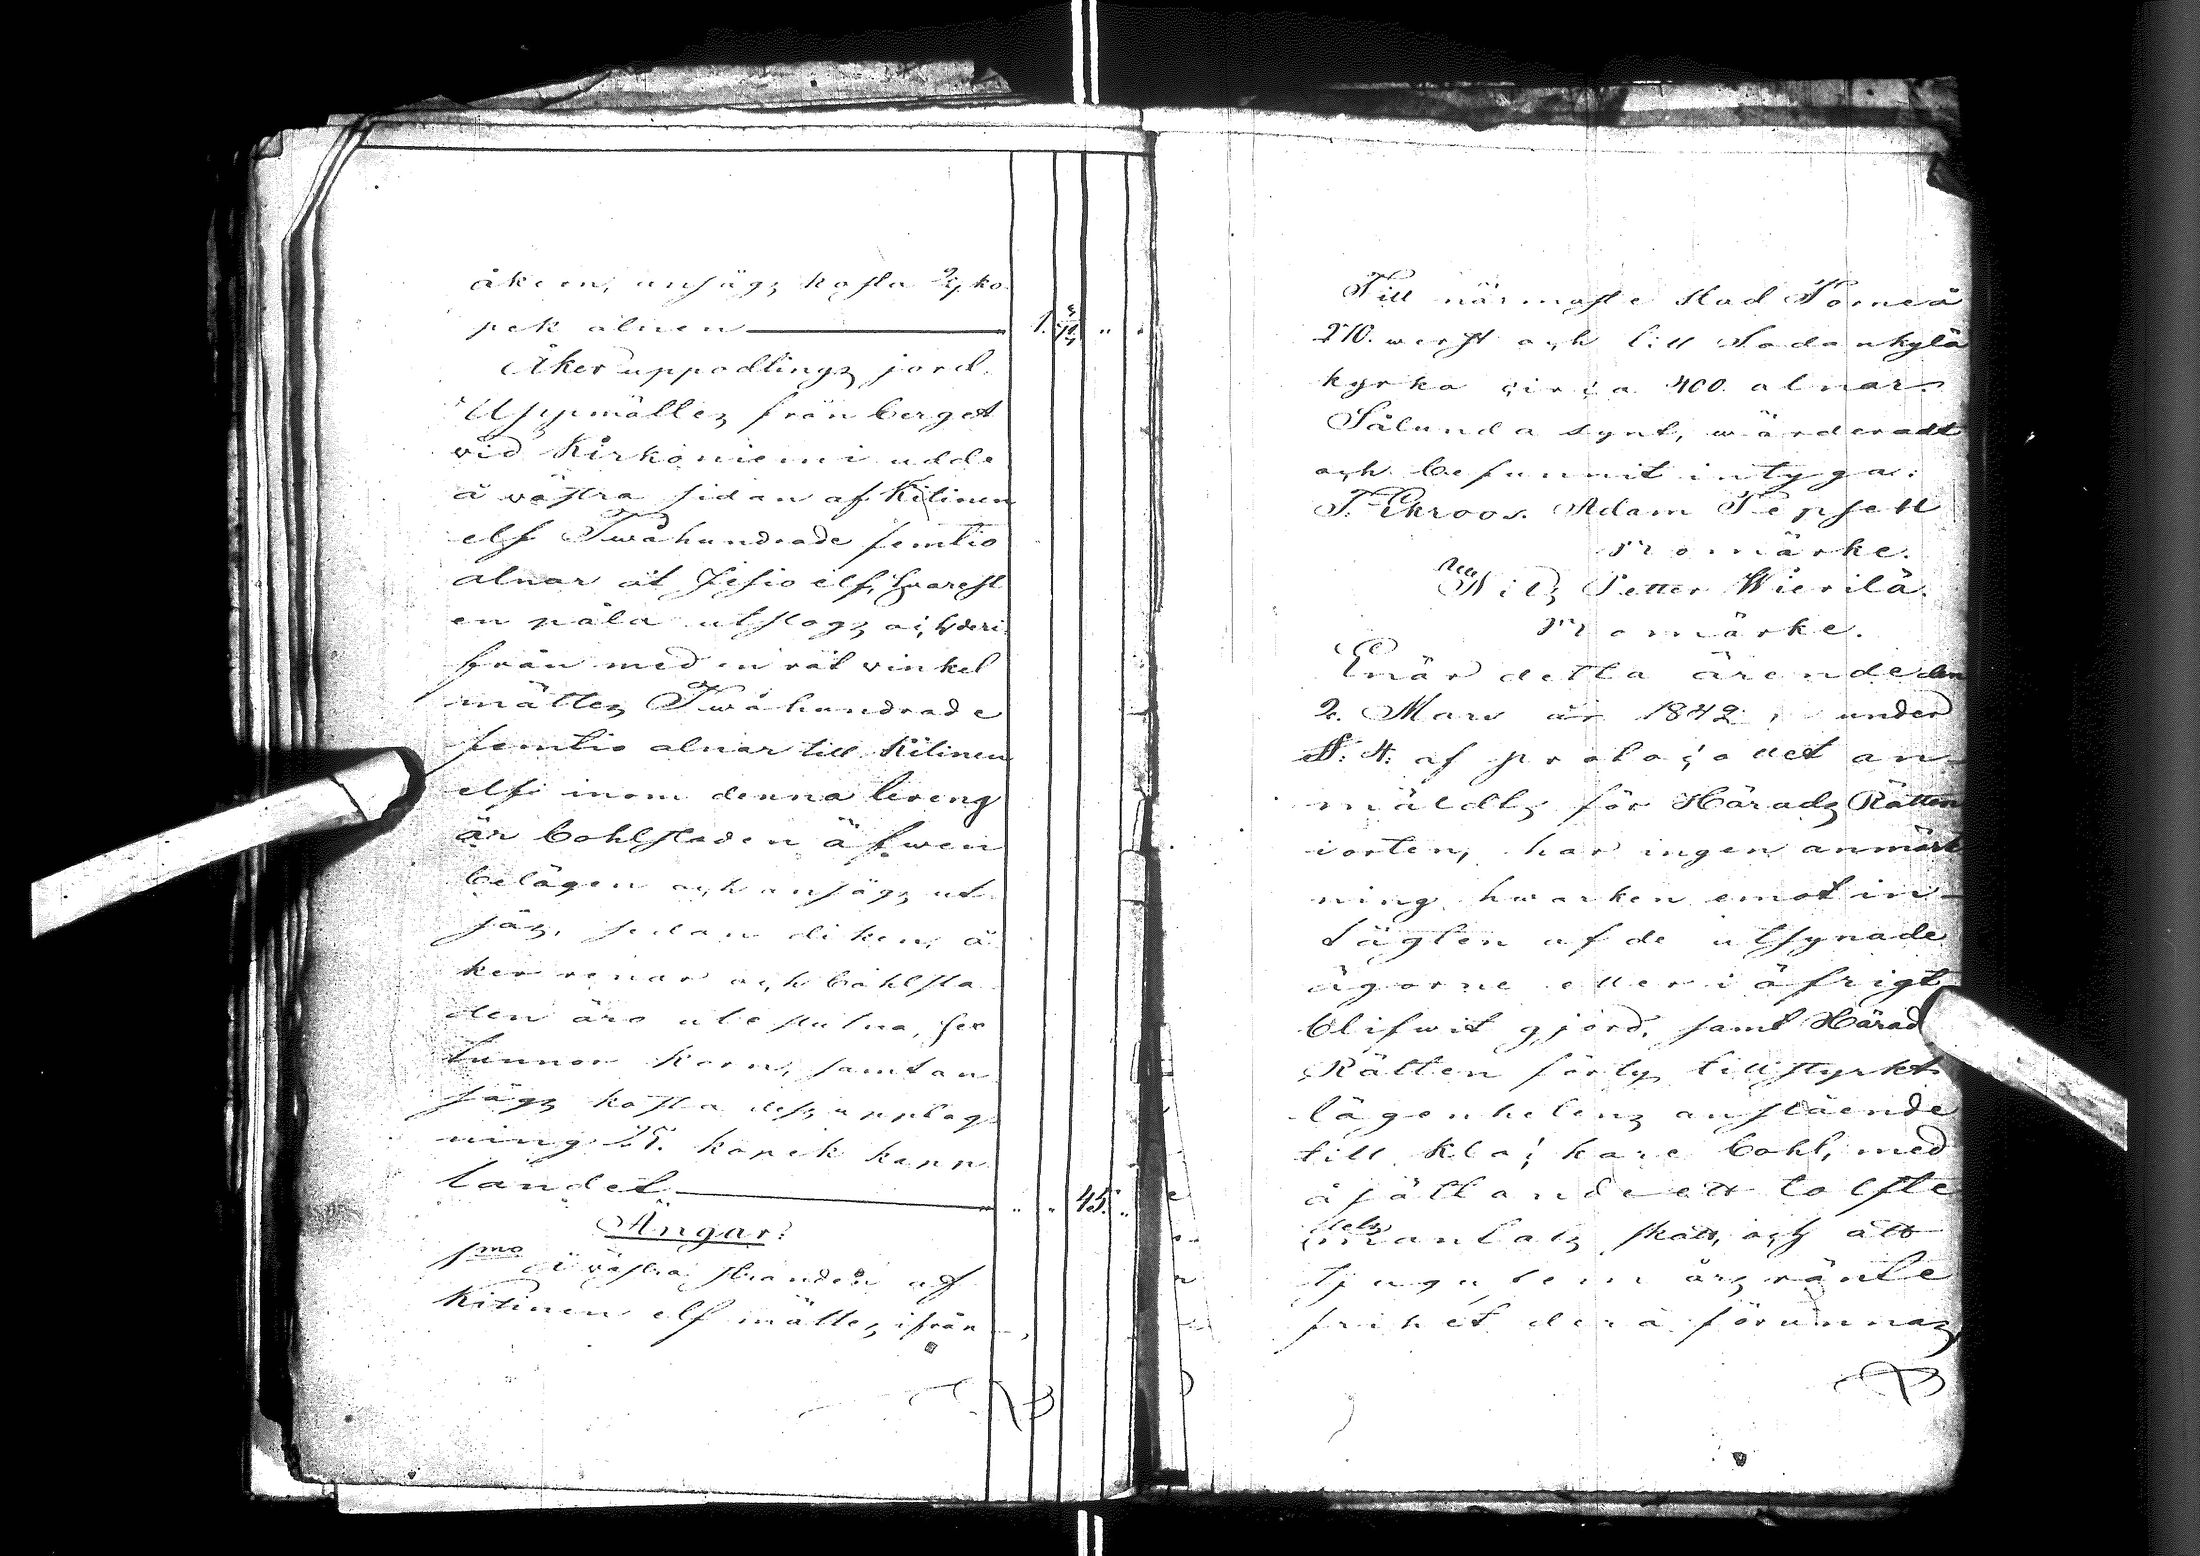 åkern, ansågs kosta 2/7 ko-
pek alnen 1. " "
Åker uppodlings jord.
Uppmättes från berget
vid Kirkoniemi udde
å västra sidan af Kitinen
elf Twåhundrade femtio
alnar åt Jesio elf, hvarest
en påla utslogs och deri-
från med en rät vinkel
mättes Twåhundrade
femtio alnar till Kitinen
elf: inom denna tereng
är bohlstaden äfwen
belägen och ansågs ut-
sås, sedan diken, å-
ker renar och bohlsta-
den äro uteslutna, sex
tunnor korn, samt an-
sågs kosta dess upptag-
ning 25. kopek kapp-
landet " " 45. "
Ängar:
1mo å västra stranden af
Kitinen elf mättes, ifrån
Till närmaste stad Torneå
270. werst och till Sodankylä
kyrka circa 400. alnar.
Sålunda synt, wärderadt
och befunnit intyga:
J. Ekroos. Adam Pepsell
Bomärke.
Nils Petter Wierilä.
Bomärke.
Enär detta ärende den
2. Mars år 1842, under
N: 4: af protocollet an-
mäldts för Härads Rätten
i orten, har ingen anmärk-
ning hwarken emot in-
tägten af de utsynade
ägorne eller i öfrigt
blifwit gjord, samt Härads
Rätten förty tillstyrkt
lägenhetens anslående
till Klockare bohl, med
åsättande ett tolfte
dels mantals skatt, och att
tjugufem års ränte
frihet derå förunnas